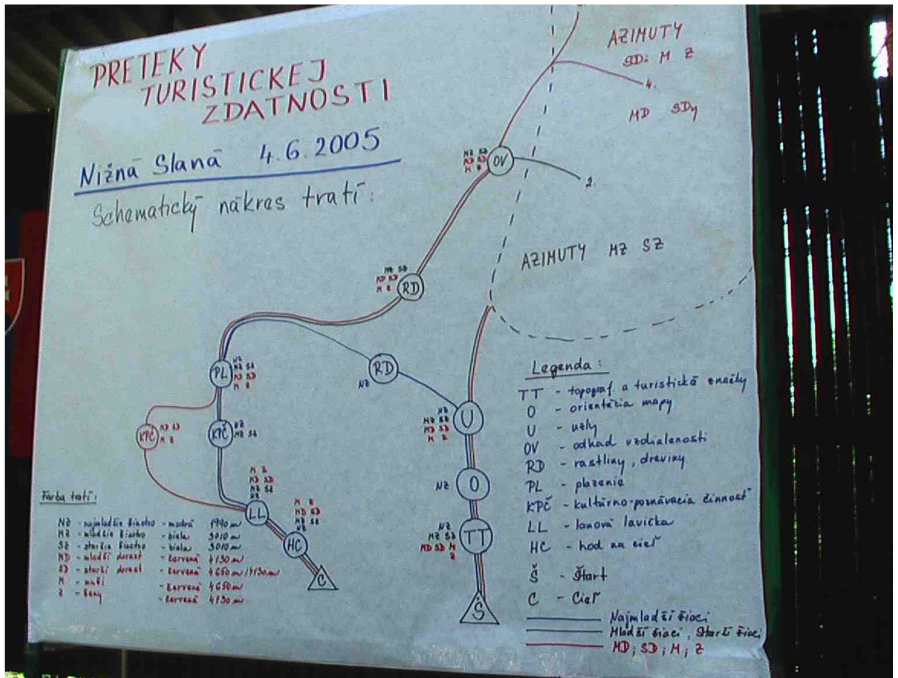 PRETEKY
TURISTICKEJ
ZDATNOSTI
Nižná Slaná 4.6.2005
Schematický nákres tratí:
AZIMUTY
SDi M Z
4.
MD SDy
MZ SZ
MD SD
M Z
OV
2.
AZIMUTY MZ SZ
MZ SZ
MD SD
M Z
RD
PL
NZ
MZ SZ
MD SD
M Z
RD
NZ
KPČ
MD SD
M Z
KPČ
NZ
MZ SZ
NZ
MZ SZ
MD SD
M Z
U
NZ
O
NZ
MZ SZ
MD SD M
Z
TT
Š
M Z
MD SD
MZ SZ
NZ
LL
M Z
MD SD
MZ SZ
NZ
HC
C
Legenda:
TT - topograf. a turistické značky
O - orientácia mapy
U - uzly
OV - odhad vzdialenosti
RD - rastliny, dreviny
PL - plazenie
KPČ - kultúrno-poznávacia činnosť
LL - lanová lavička
HC - hod na cieľ
Š - Štart
C - Cieľ
Najmladší žiaci
Mladší žiaci, Starší žiaci
MD; SD; M; Z
Farba tratí:
NZ - najmladšie žiactvo - modrá
MZ - mladšie žiactvo - biela 3010 m
SZ - staršie žiactvo - biela 3010 m
MD - mladší dorast - červená 4130 m
SD - starší dorast - červená 4650 m/4130 m
M - muži - červená 4650 m
Z - ženy - červená 4130 m